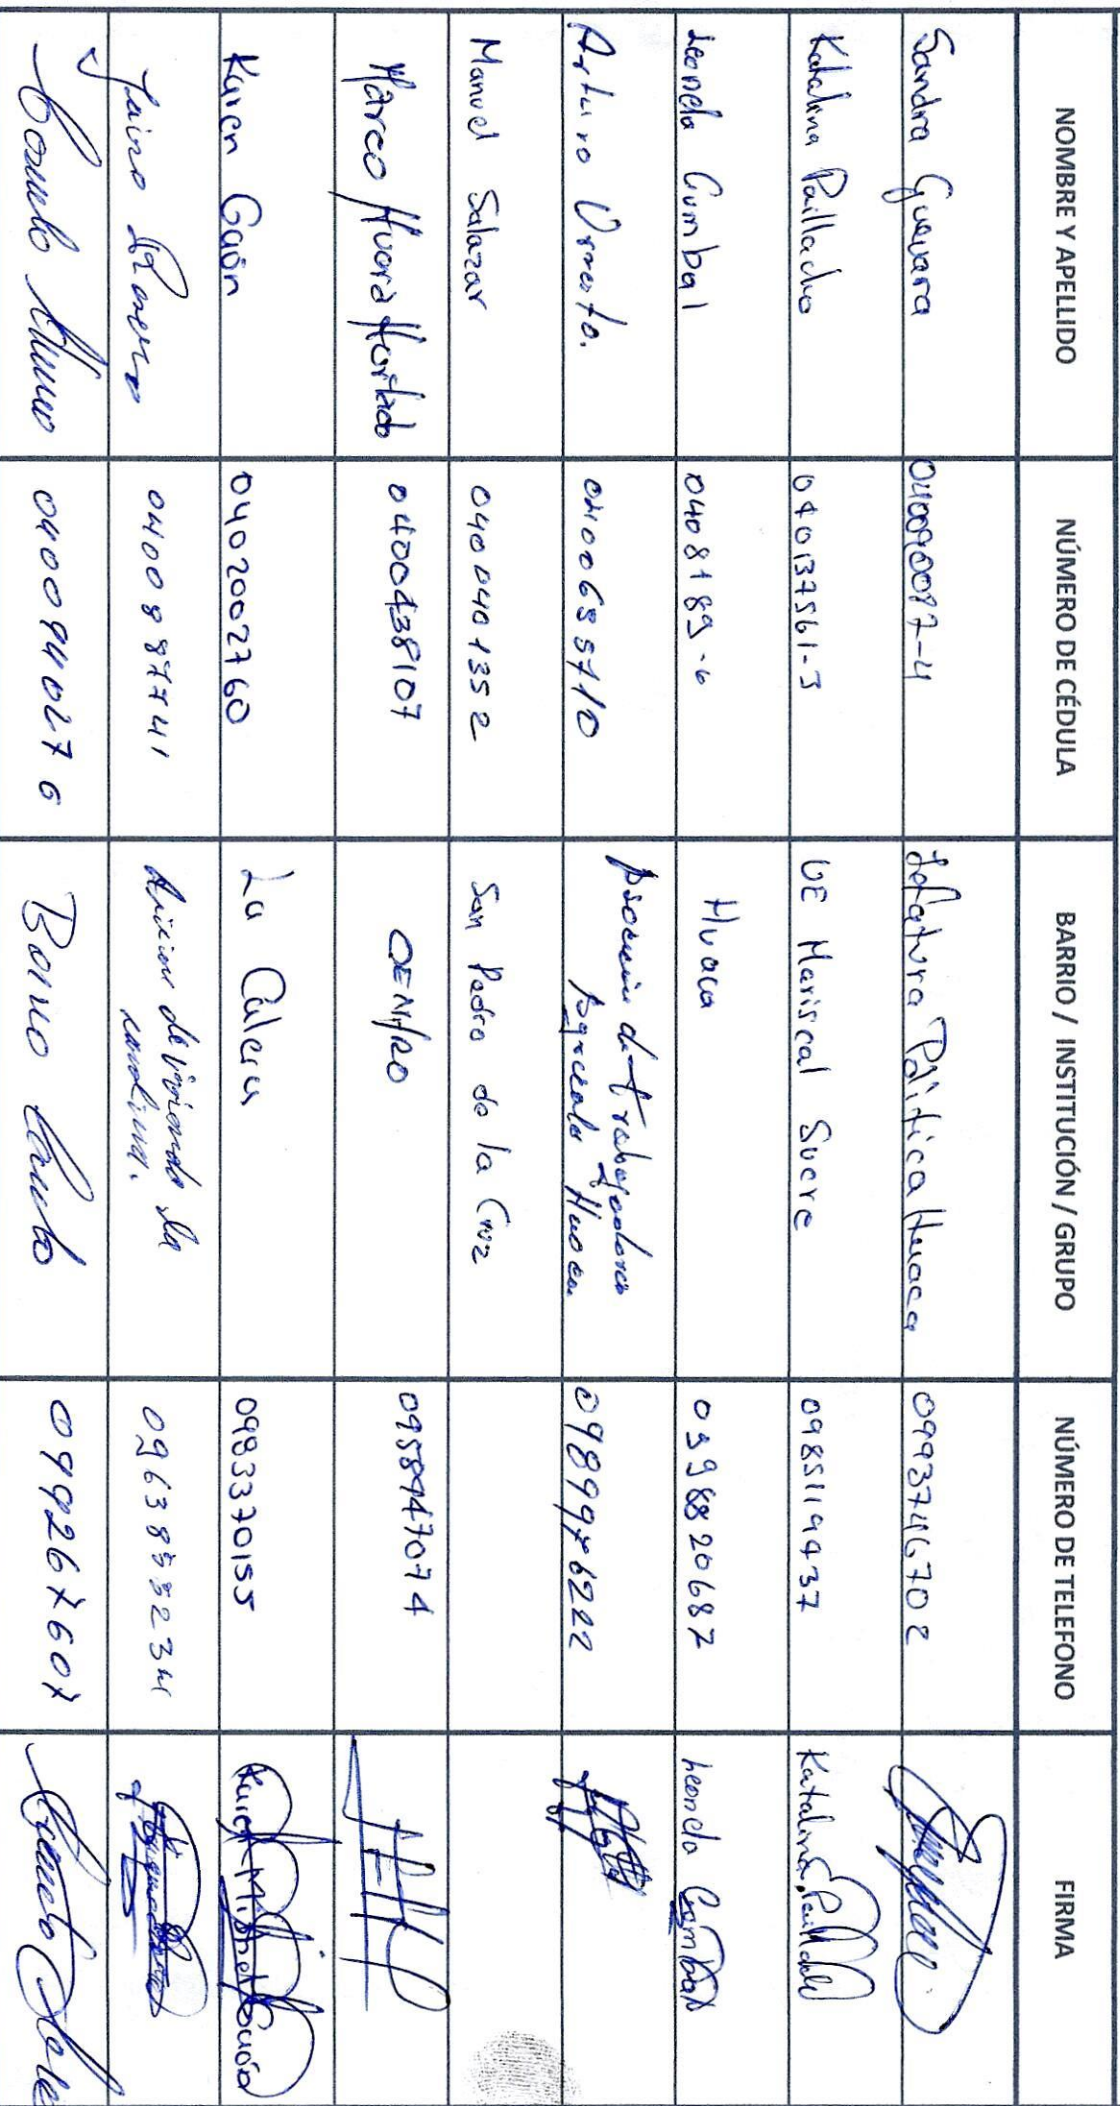 NOMBRE Y APELLIDO NÚMERO DE CÉDULA BARRIO / INSTITUCIÓN / GRUPO NÚMERO DE TELEFONO FIRMA
Sandra Guevara 040090087-4 Jefatura Política Huaca 0993746702
Katalina Paillacho 040137561-3 UE Mariscal Sucre 0985119437 Katalina Paillacho
Leonela Cumbal 0408189-6 Huaca 0398820687 Leonela Cumbal
Arturo 0400655710 de trabajadores
Huaca 0989976222
Manuel Salazar 0400401352 San Pedro de la Cruz
Marco Huera Hurtado 0400438107 CENTRO 0958947074
Karen Gaón 0402002760 La Calera 0983370155 Karen
Jairo 0400887741 de vivienda la 0963855234
0400940276 0992676607